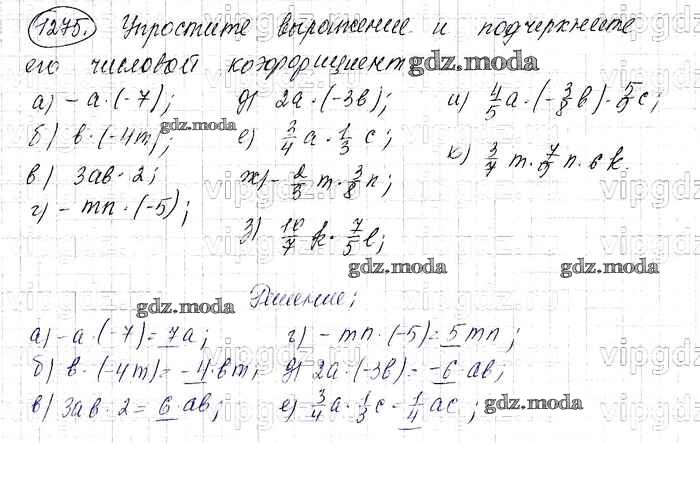 1275. Упростите выражение и подчеркните
его числовой коэффициент gdz.moda
а) -a·(-7); д) 2a·(-3b); и) 4/5 a·(-3/8 b)·5/9 c;
б) b·(-4m); gdz.moda е) 3/4 a·1/3 c; к) 3/7 m·7/9 n·6k.
в) 3ab·2; ж) -2/3 m·3/8 n;
г) -mn·(-5); з) 10/7 k·7/5 l;
gdz.moda gdz.moda
gdz.moda Решение;
а) -a·(-7)=7a; г) -mn·(-5)=5mn;
б) b·(-4m)=-4bm; д) 2a·(-3b)=-6ab;
в) 3ab·2=6ab; е) 3/4 a·1/3 c=1/4 ac; gdz.moda
vipgdz.ru